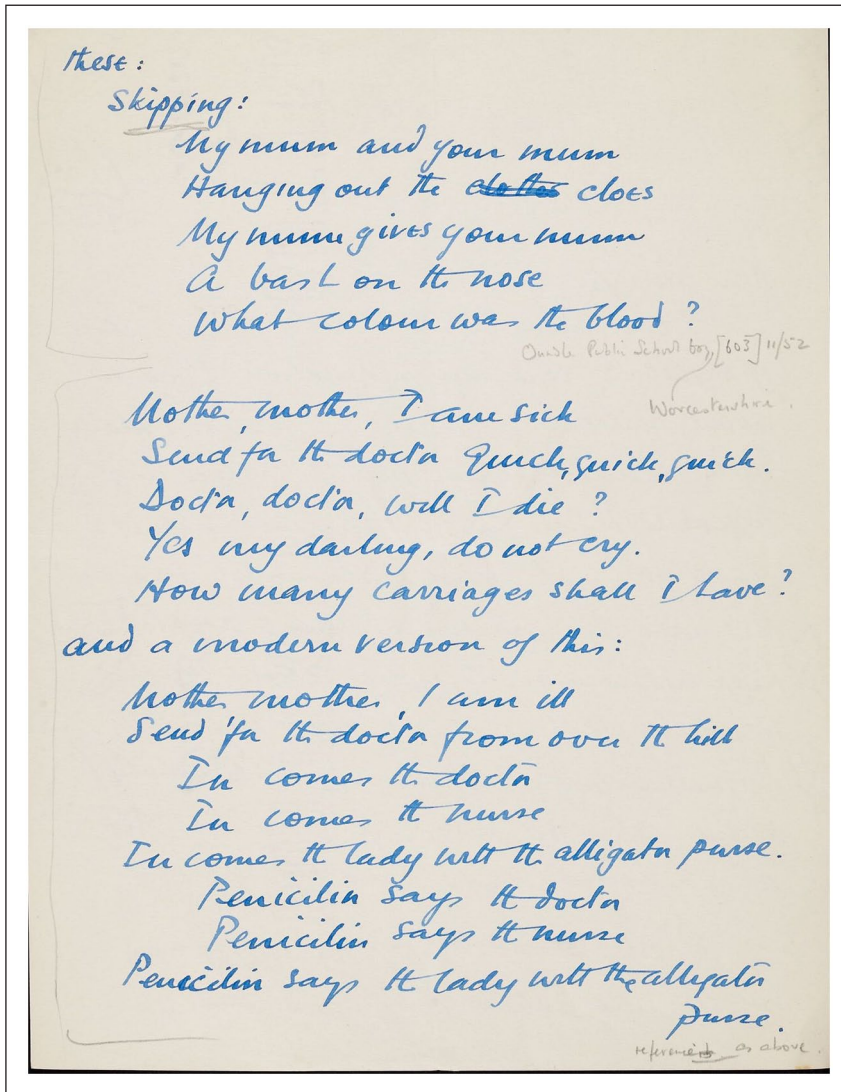 these:
Skipping:
My mum and your mum
Hanging out the clothes cloes
My mum gives your mum
A bash on the nose
What colour was the blood?
Oundle Public School boy, [603] 11/52
Worcestershire.
Mother, mother, I am sick
Send for the doctor Quick, quick, quick.
Doctor, doctor, will I die?
Yes my darling, do not cry.
How many carriages shall I have?
and a modern version of this:
Mother mother, I am ill
Send for the doctor from over the hill
In comes the doctor
In comes the nurse
In comes the lady with the alligator purse.
Penicilin says the doctor
Penicilin says the nurse
Penicilin says the lady with the alligator
purse.
as above.